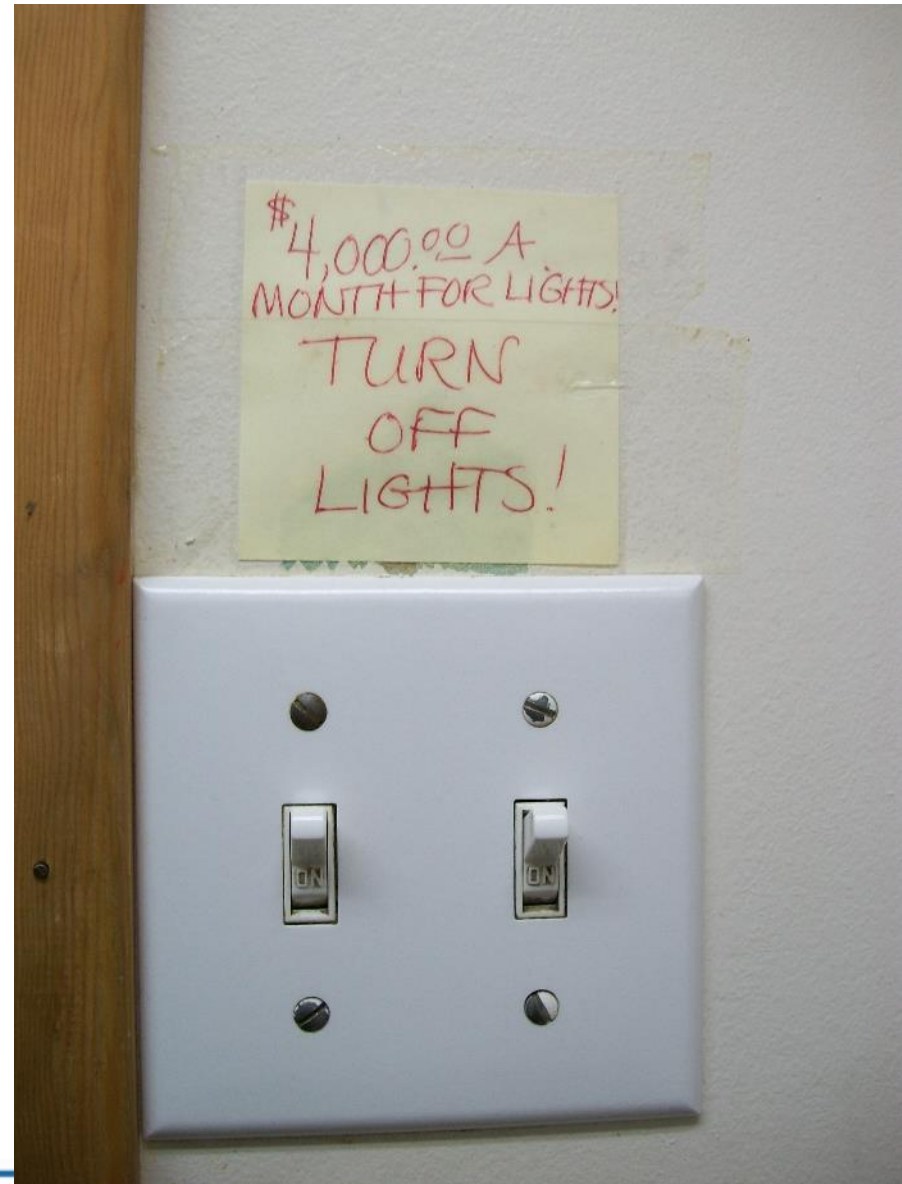 $4,000.00 A
MONTH FOR LIGHTS!
TURN
OFF
LIGHTS!
ON ON